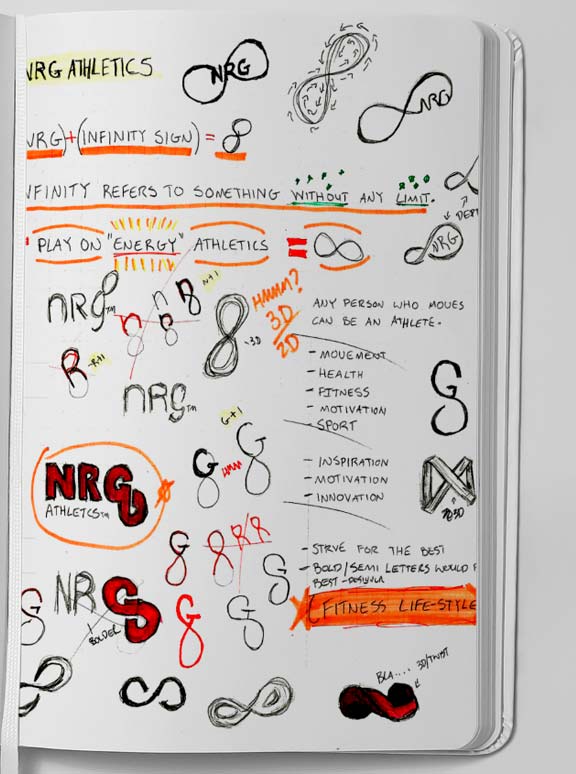 NRG ATHLETICS
NRG
NRG
NRG)+(INFINITY SIGN) = 
INFINITY REFERS TO SOMETHING WITHOUT ANY LIMIT.
NRG
= PLAY ON "ENERGY" ATHLETICS = ∞
nRG™
n
R
HMMM?
3D
2D
-3D
ANY PERSON WHO MOVES
CAN BE AN ATHLETE.
- MOVEMENT
- HEALTH
- FITNESS
- MOTIVATION
- SPORT
nRG™
G+1
- INSPIRATION
- MOTIVATION
- INNOVATION
NRG
ATHLETCS™
- STRVE FOR THE BEST
- BOLD/SEMI LETTERS WOULD
BEST - DESIGNER
(FITNESS LIFE-STYLE
NRG
BOLDER
BLA.... 3D/TWIST